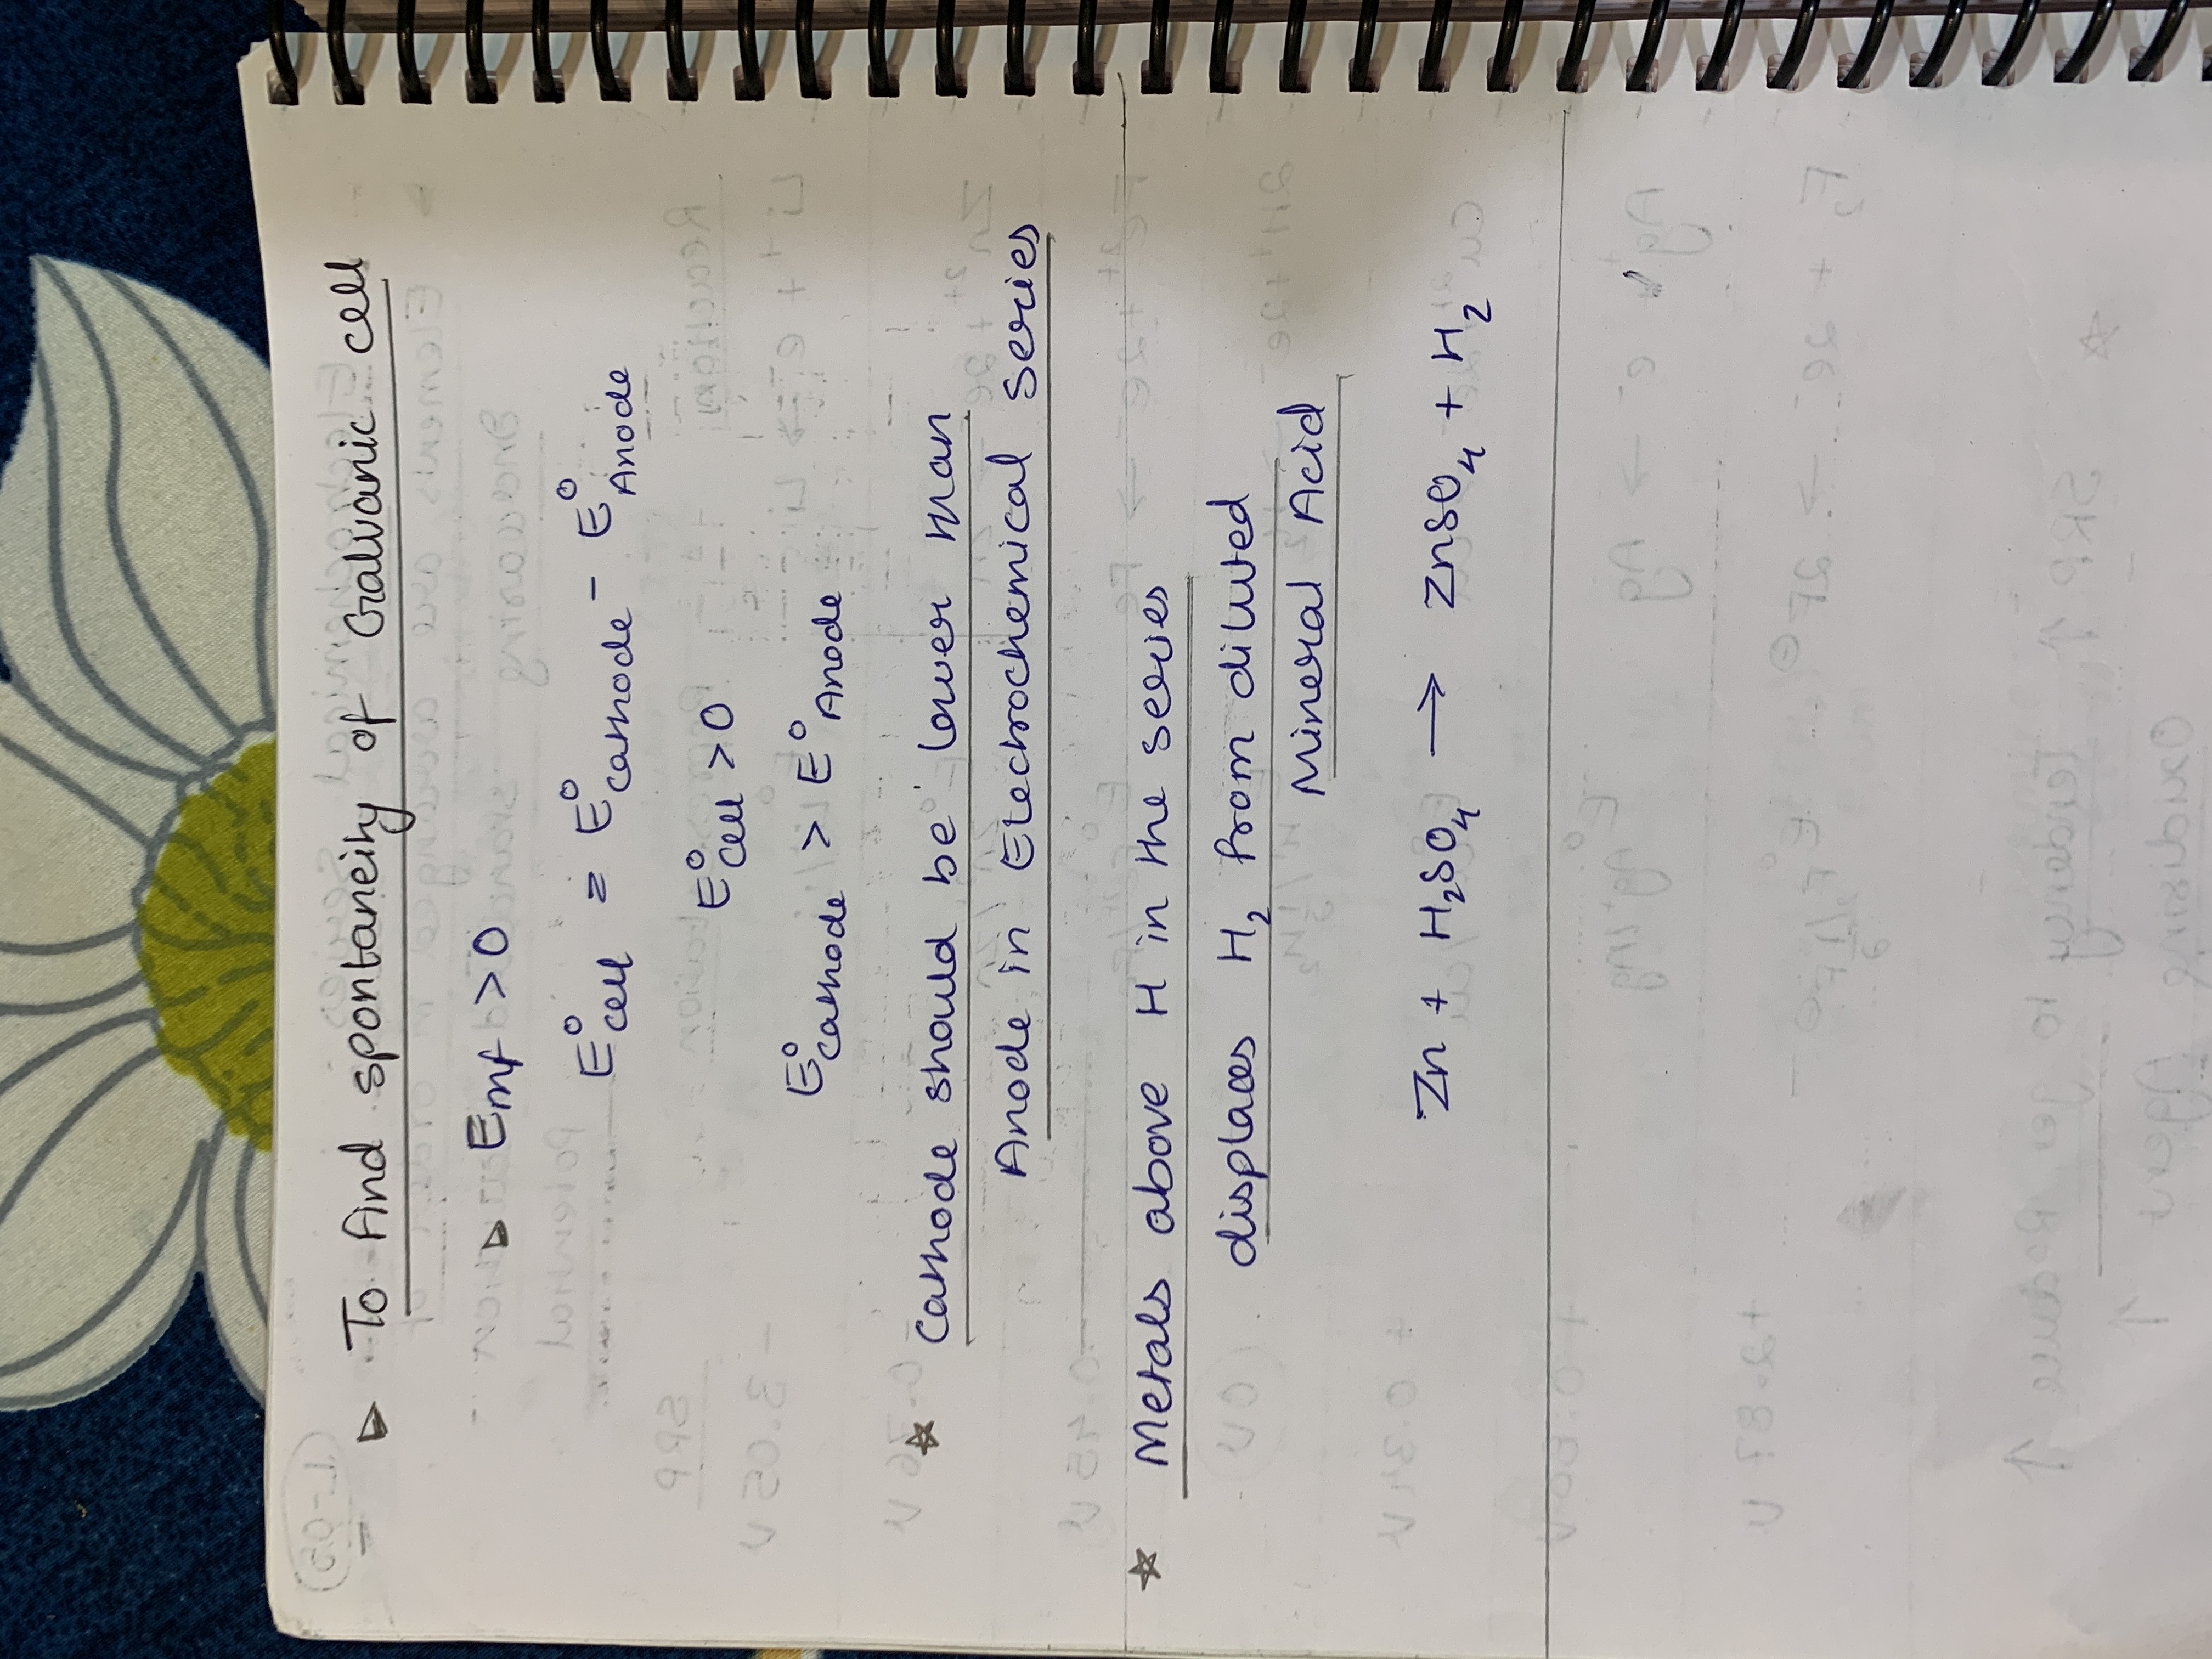 ▷ To find spontaneity of Galvanic cell
▷ Emf > 0
E°cell = E°cathode - E°Anode
E°cell > 0
E°cathode > E°Anode
☆ Cathode should be lower than
Anode in Electrochemical Series
☆ Metals above H in the series
displaces H₂ from diluted
Mineral Acid
Zn + H₂SO₄ → ZnSO₄ + H₂